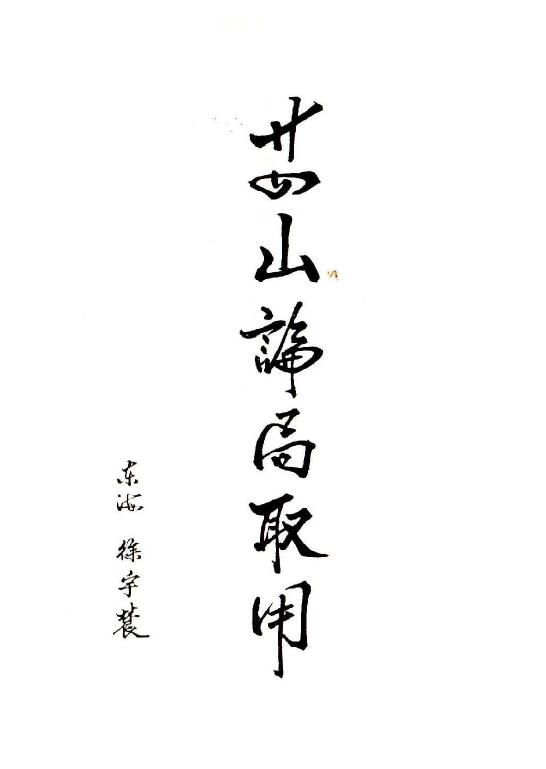 廿四山論局取用
东海 徐宇辳